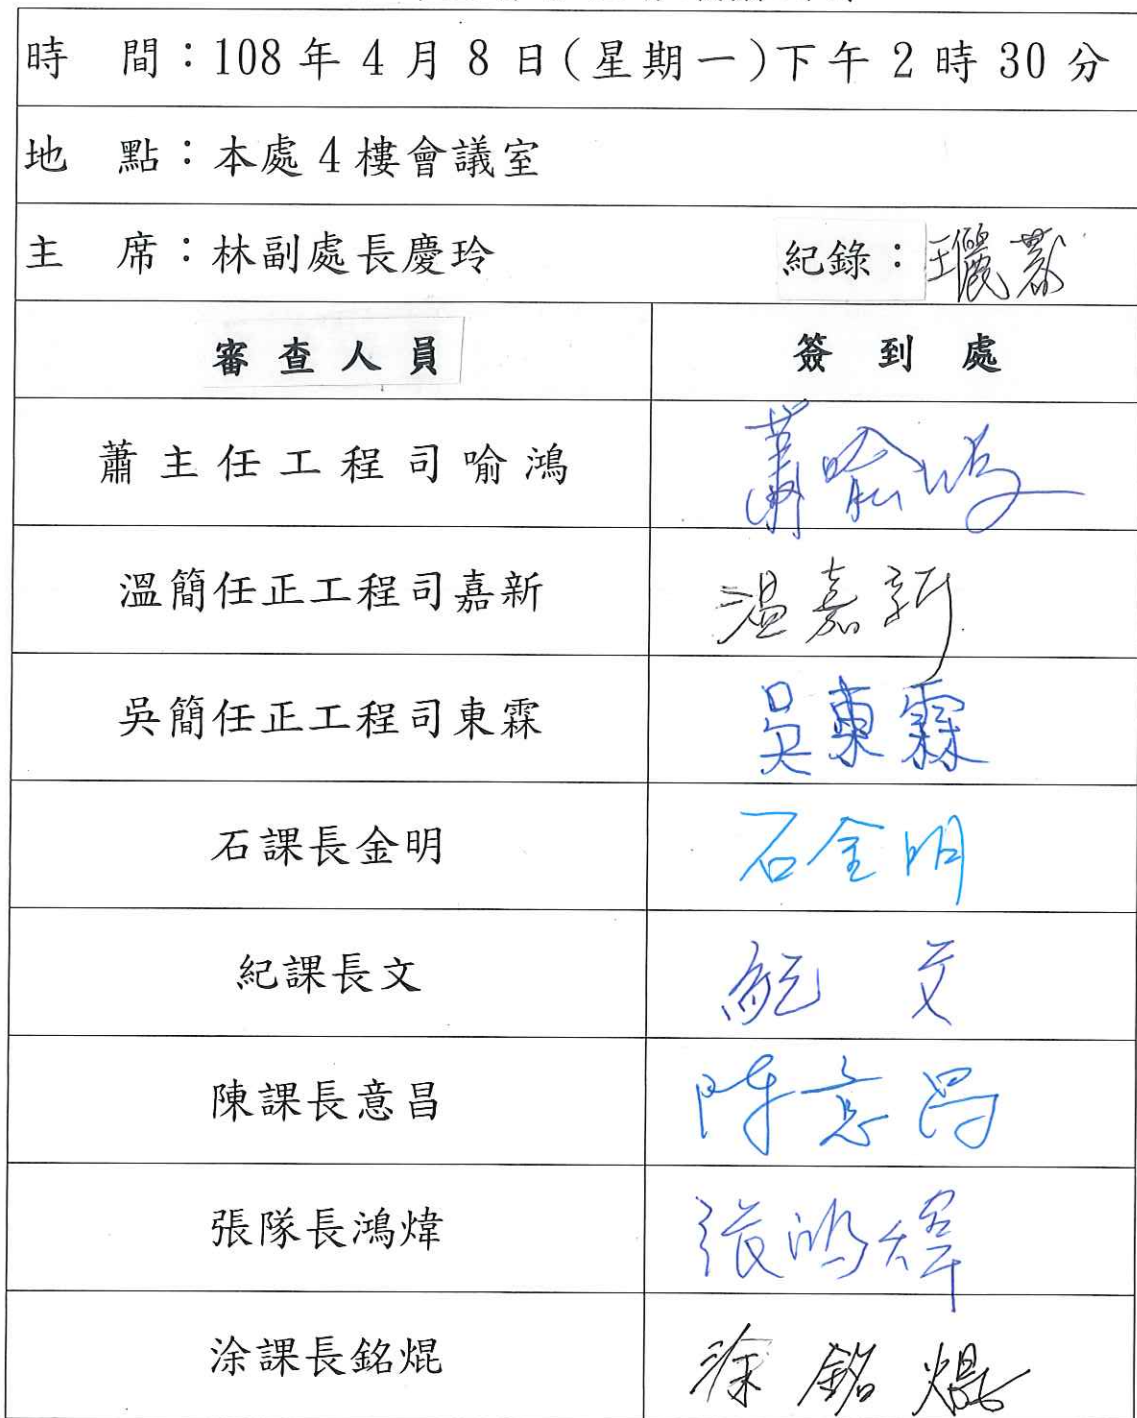 時　間：108年4月8日(星期一)下午2時30分
地　點：本處4樓會議室
主　席：林副處長慶玲　紀錄：
審查人員　簽到處
蕭主任工程司喻鴻　蕭喻鴻
溫簡任正工程司嘉新　溫嘉新
吳簡任正工程司東霖　吳東霖
石課長金明　石金明
紀課長文　紀文
陳課長意昌　陳意昌
張隊長鴻煒　張鴻煒
涂課長銘焜　涂銘焜